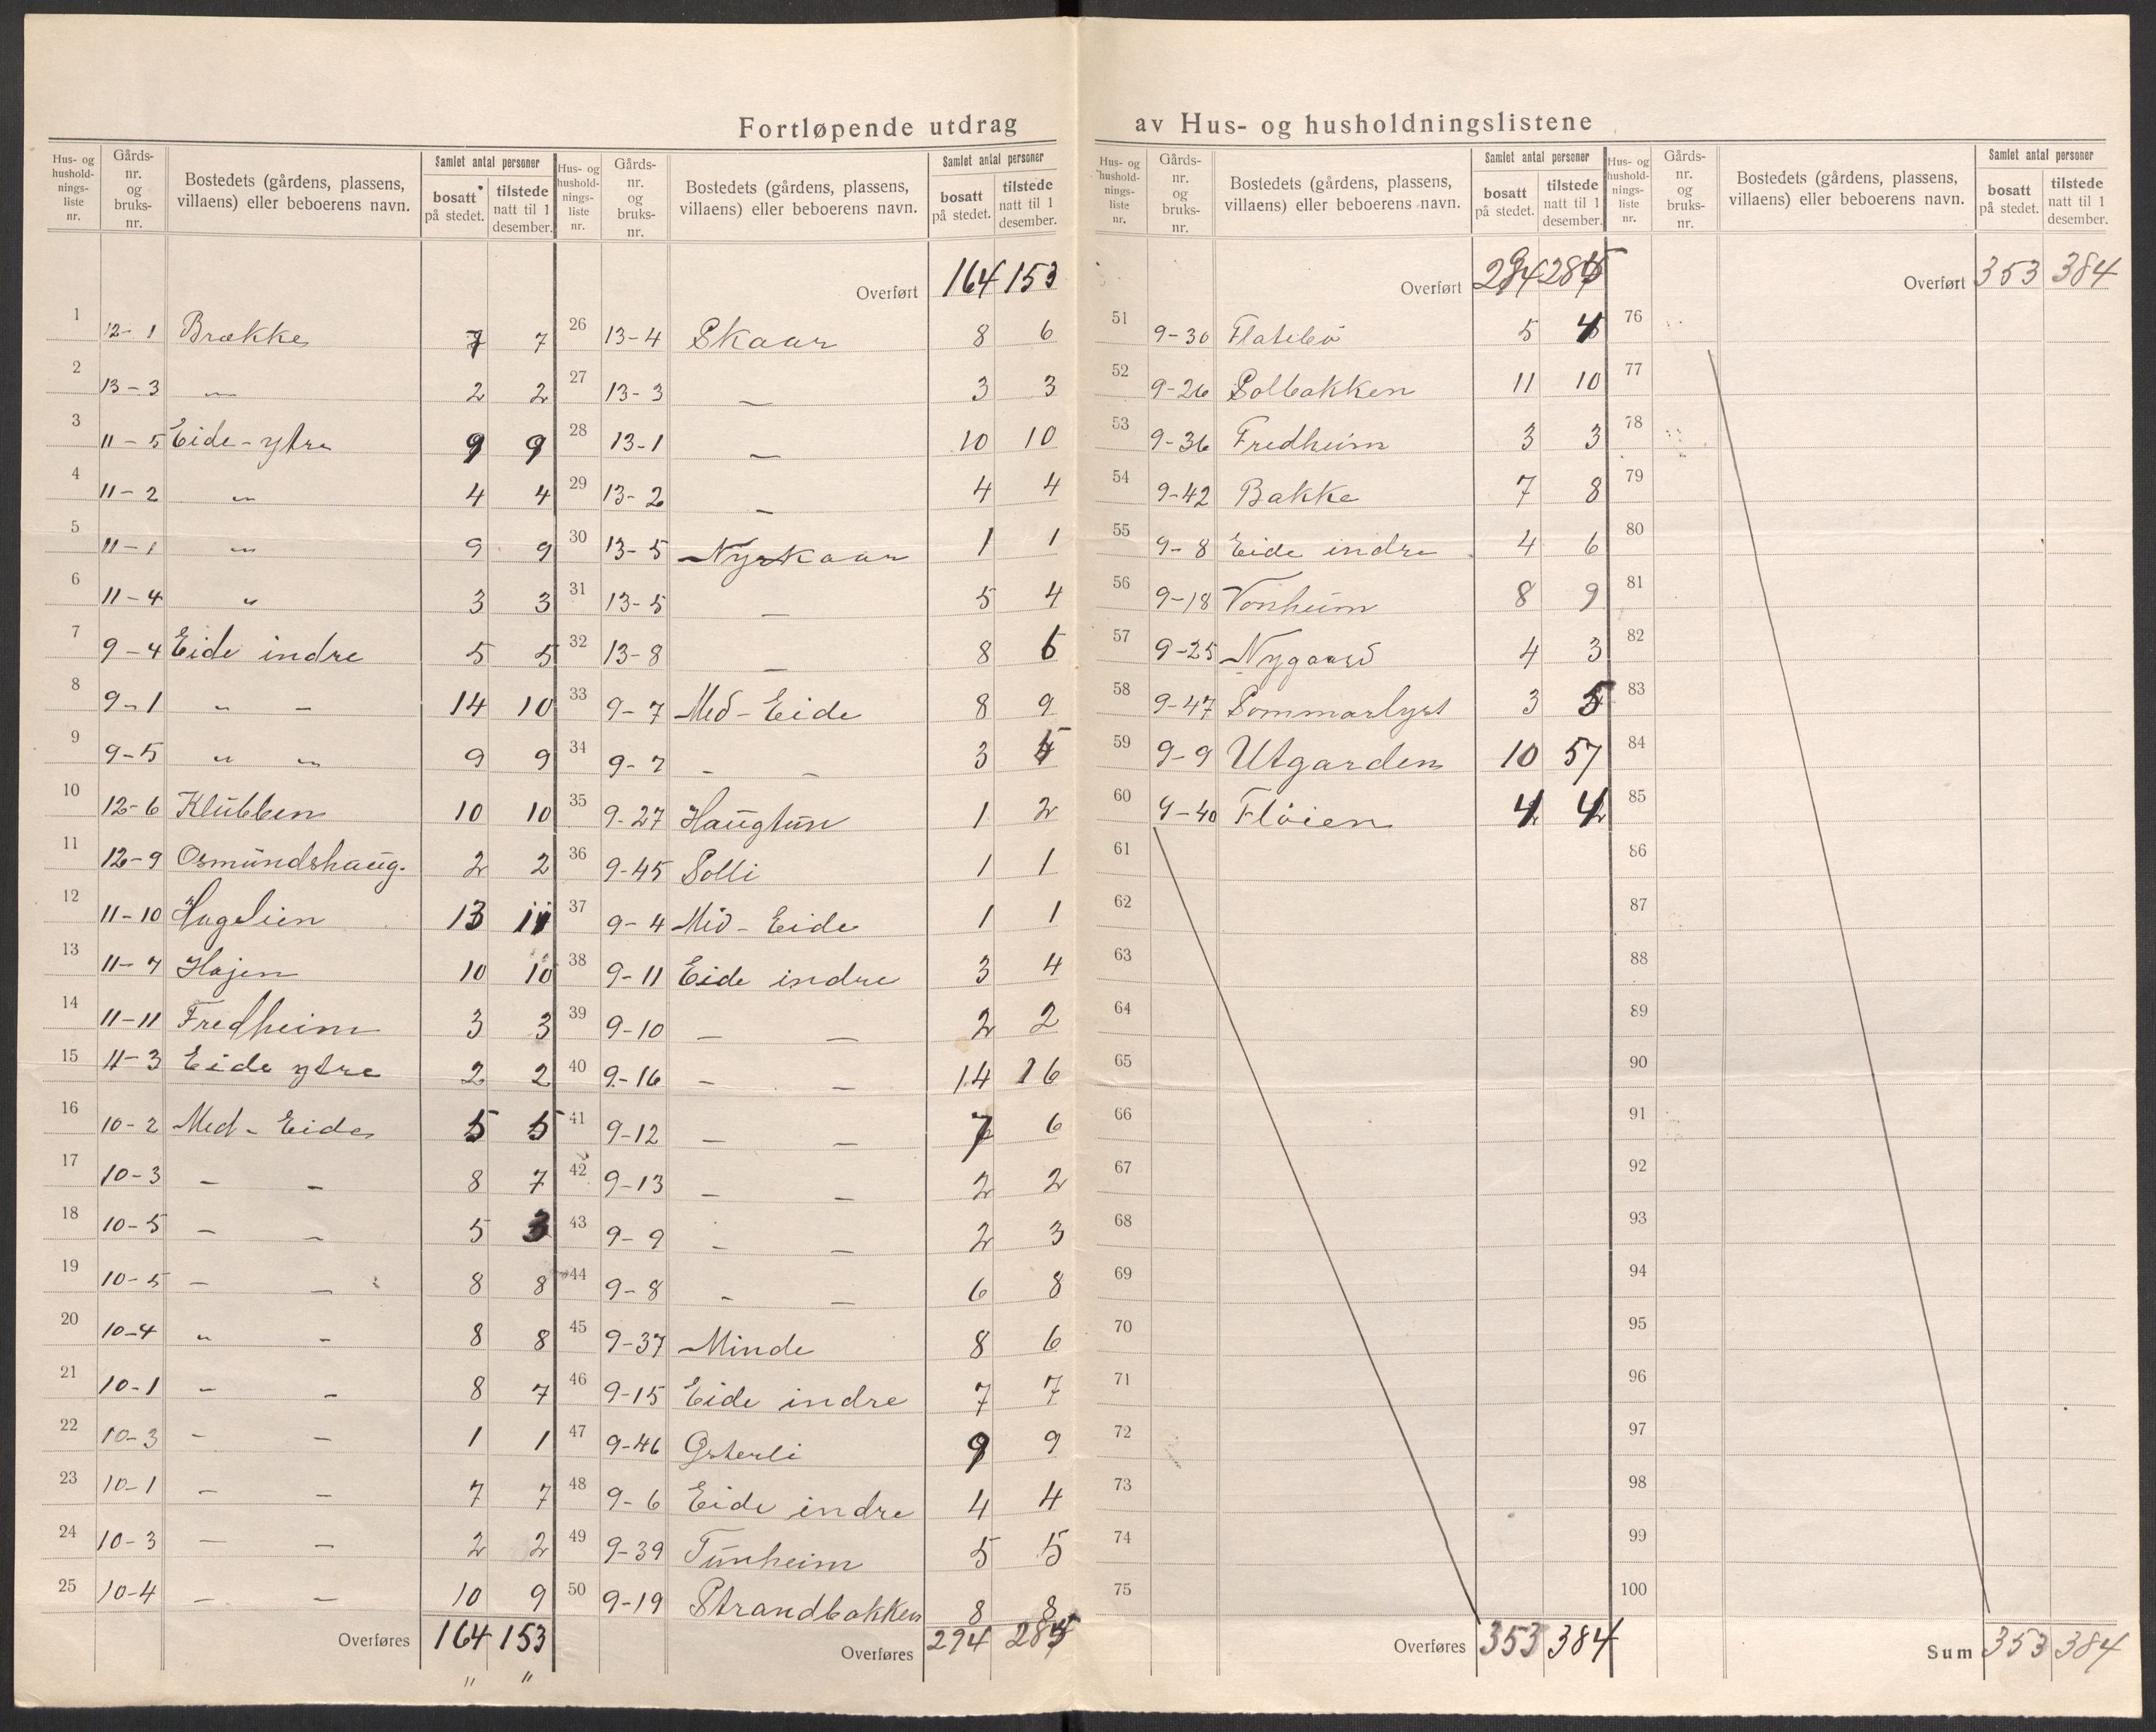 Fortløpende utdrag av Hus- og husholdningslistene
Hus- og husholdningsliste nr. | Gårds- nr. og bruks- nr. | Bostedets (gårdens, plassens, villaens) eller beboerens navn. | Samlet antal personer | bosatt på stedet. | tilstede natt til 1 desember.
1 12-1 Brække 7 7
2 13-3 " 2 2
3 11-5 Eide-ytre 9 9
4 11-2 " 4 4
5 11-1 " 9 9
6 11-4 " 3 3
7 9-4 Eide indre 5 5
8 9-1 " - 14 10
9 9-5 " " 9 9
10 12-6 Klubben 10 10
11 12-9 Osmundshaug. 2 2
12 11-10 Hagelien 13 11
13 11-7 Hajen 10 10
14 11-11 Fredheim 3 3
15 11-3 Eide ytre 2 2
16 10-2 Med-Eide 5 5
17 10-3 - - 8 7
18 10-5 - - 5 3
19 10-5 - - 8 8
20 10-4 " - 8 8
21 10-1 - - 8 7
22 10-3 - - 1 1
23 10-1 - - 7 7
24 10-3 - - 2 2
25 10-4 - - 10 9
Overføres 164 153
" "
Hus- og husholdningsliste nr. | Gårds- nr. og bruks- nr. | Bostedets (gårdens, plassens, villaens) eller beboerens navn. | Samlet antal personer | bosatt på stedet. | tilstede natt til 1 desember.
Overført 164 153
26 13-4 Skaar 8 6
27 13-3 - 3 3
28 13-1 - 10 10
29 13-2 - 4 4
30 13-5 Nyskaar 1 1
31 13-5 - 5 4
32 13-8 - 8 6
33 9-7 Med-Eide 8 9
34 9-7 - - 3 5
35 9-27 Haugtun 1 2
36 9-45 Solli 1 1
37 9-4 Mid-Eide 1 1
38 9-11 Eide indre 3 4
39 9-10 - - 2 2
40 9-16 - - 14 16
41 9-12 - - 7 6
42 9-13 - - 2 2
43 9-9 - - 2 3
44 9-8 - - 6 8
45 9-37 Minde 8 6
46 9-15 Eide indre 7 7
47 9-46 9 9
48 9-6 Eide indre 4 4
49 9-39 Tunheim 5 5
50 9-19 Strandbakken 8 8
Overføres 294 285
Hus- og husholdningsliste nr. | Gårds- nr. og bruks- nr. | Bostedets (gårdens, plassens, villaens) eller beboerens navn. | Samlet antal personer | bosatt på stedet. | tilstede natt til 1 desember.
Overført 294 285
51 9-30 Flatebø 5 4
52 9-26 Solbakken 11 10
53 9-36 Fredheim 3 3
54 9-42 Bakke 7 8
55 9-8 Eide indre 4 6
56 9-18 Vonheim 8 9
57 9-25 Nygaard 4 3
58 9-47 Sommarlyst 3 5
59 9-9 Utgarden 10 57
60 9-40 Fløien 4 4
61
62
63
64
65
66
67
68
69
70
71
72
73
74
75
Overføres 353 384
Hus- og husholdningsliste nr. | Gårds- nr. og bruks- nr. | Bostedets (gårdens, plassens, villaens) eller beboerens navn. | Samlet antal personer | bosatt på stedet. | tilstede natt til 1 desember.
Overført 353 384
76
77
78
79
80
81
82
83
84
85
86
87
88
89
90
91
92
93
94
95
96
97
98
99
100
Sum 353 384